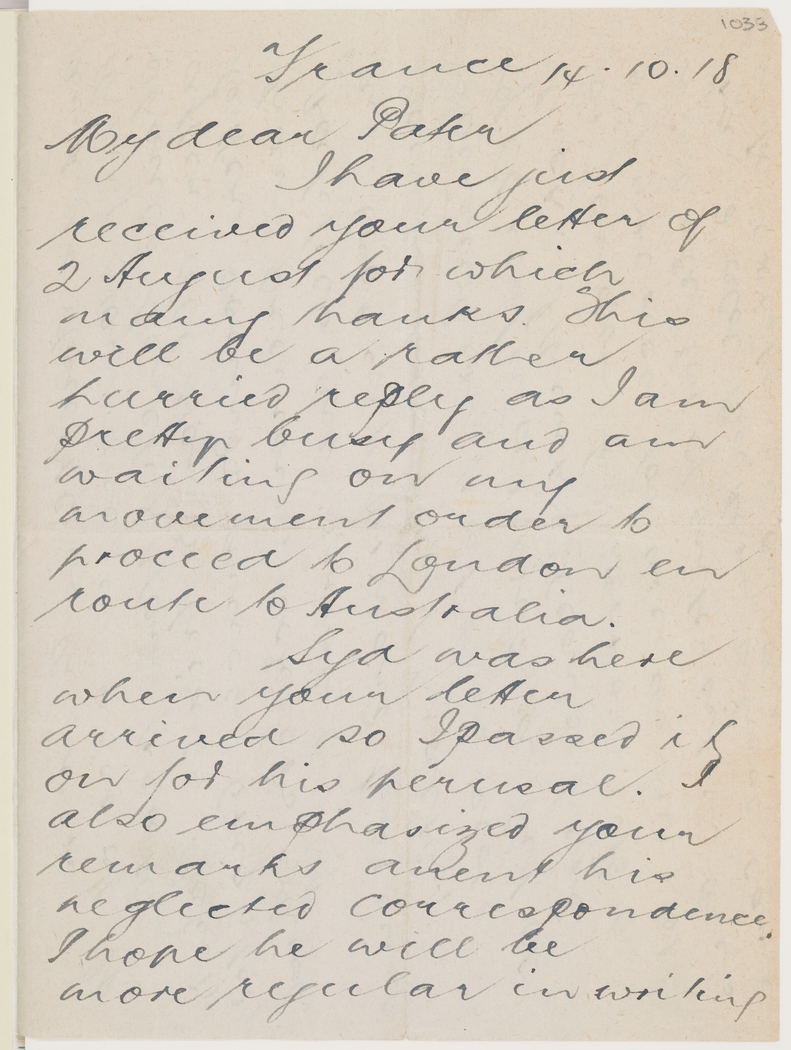 1033
France 14.10.18
My dear Pater
I have just
received your letter of
2 August for which
many thanks. This
will be a rather
hurried reply as I am
pretty busy and am
waiting on my
movement order to
proceed to London en
route to Australia.
Syd was here
when your letter
arrived so I passed it
on for his perusal. I
also emphasized your
remarks anent his
neglected correspondence.
I hope he will be
more regular in writing